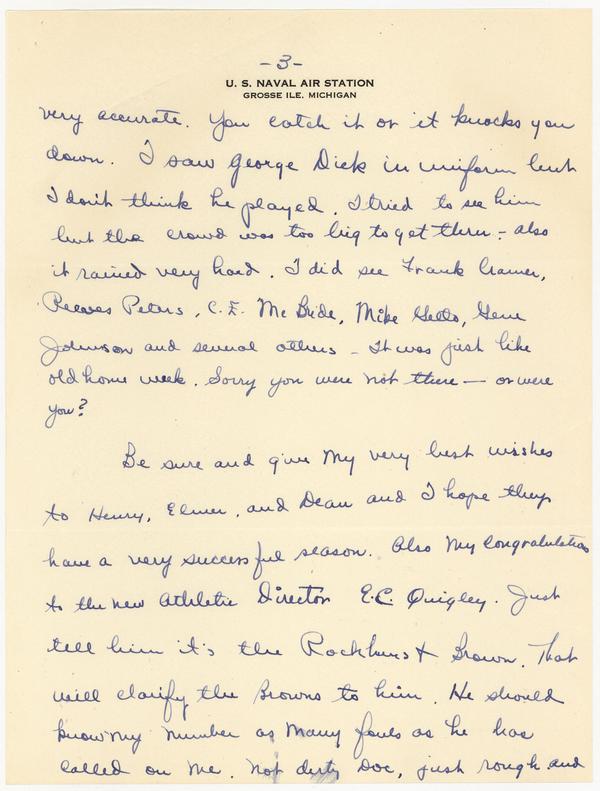 -3-
U. S. NAVAL AIR STATION
GROSSE ILE, MICHIGAN
very accurate. You catch it or it knocks you
down. I saw George Dick in uniform but
I don't think he played. I tried to see him
but the crowd was too big to get thru - also
it rained very hard. I did see Frank Cramer,
Reeves Peters, C.E. McBride, Mike Getto, Gene
Johnson and several others - It was just like
old home week. Sorry you were not there - or were
you?
Be sure and give my very best wishes
to Henry, Elmer, and Dean and I hope they
have a very successful season. Also my congratulations
to the new Athletic Director E.C. Quigley. Just
tell him it's the Rockhurst Brown. That
will clarify the Browns to him. He should
know my number as many fouls as he has
called on me. Not dirty Doc, just rough and